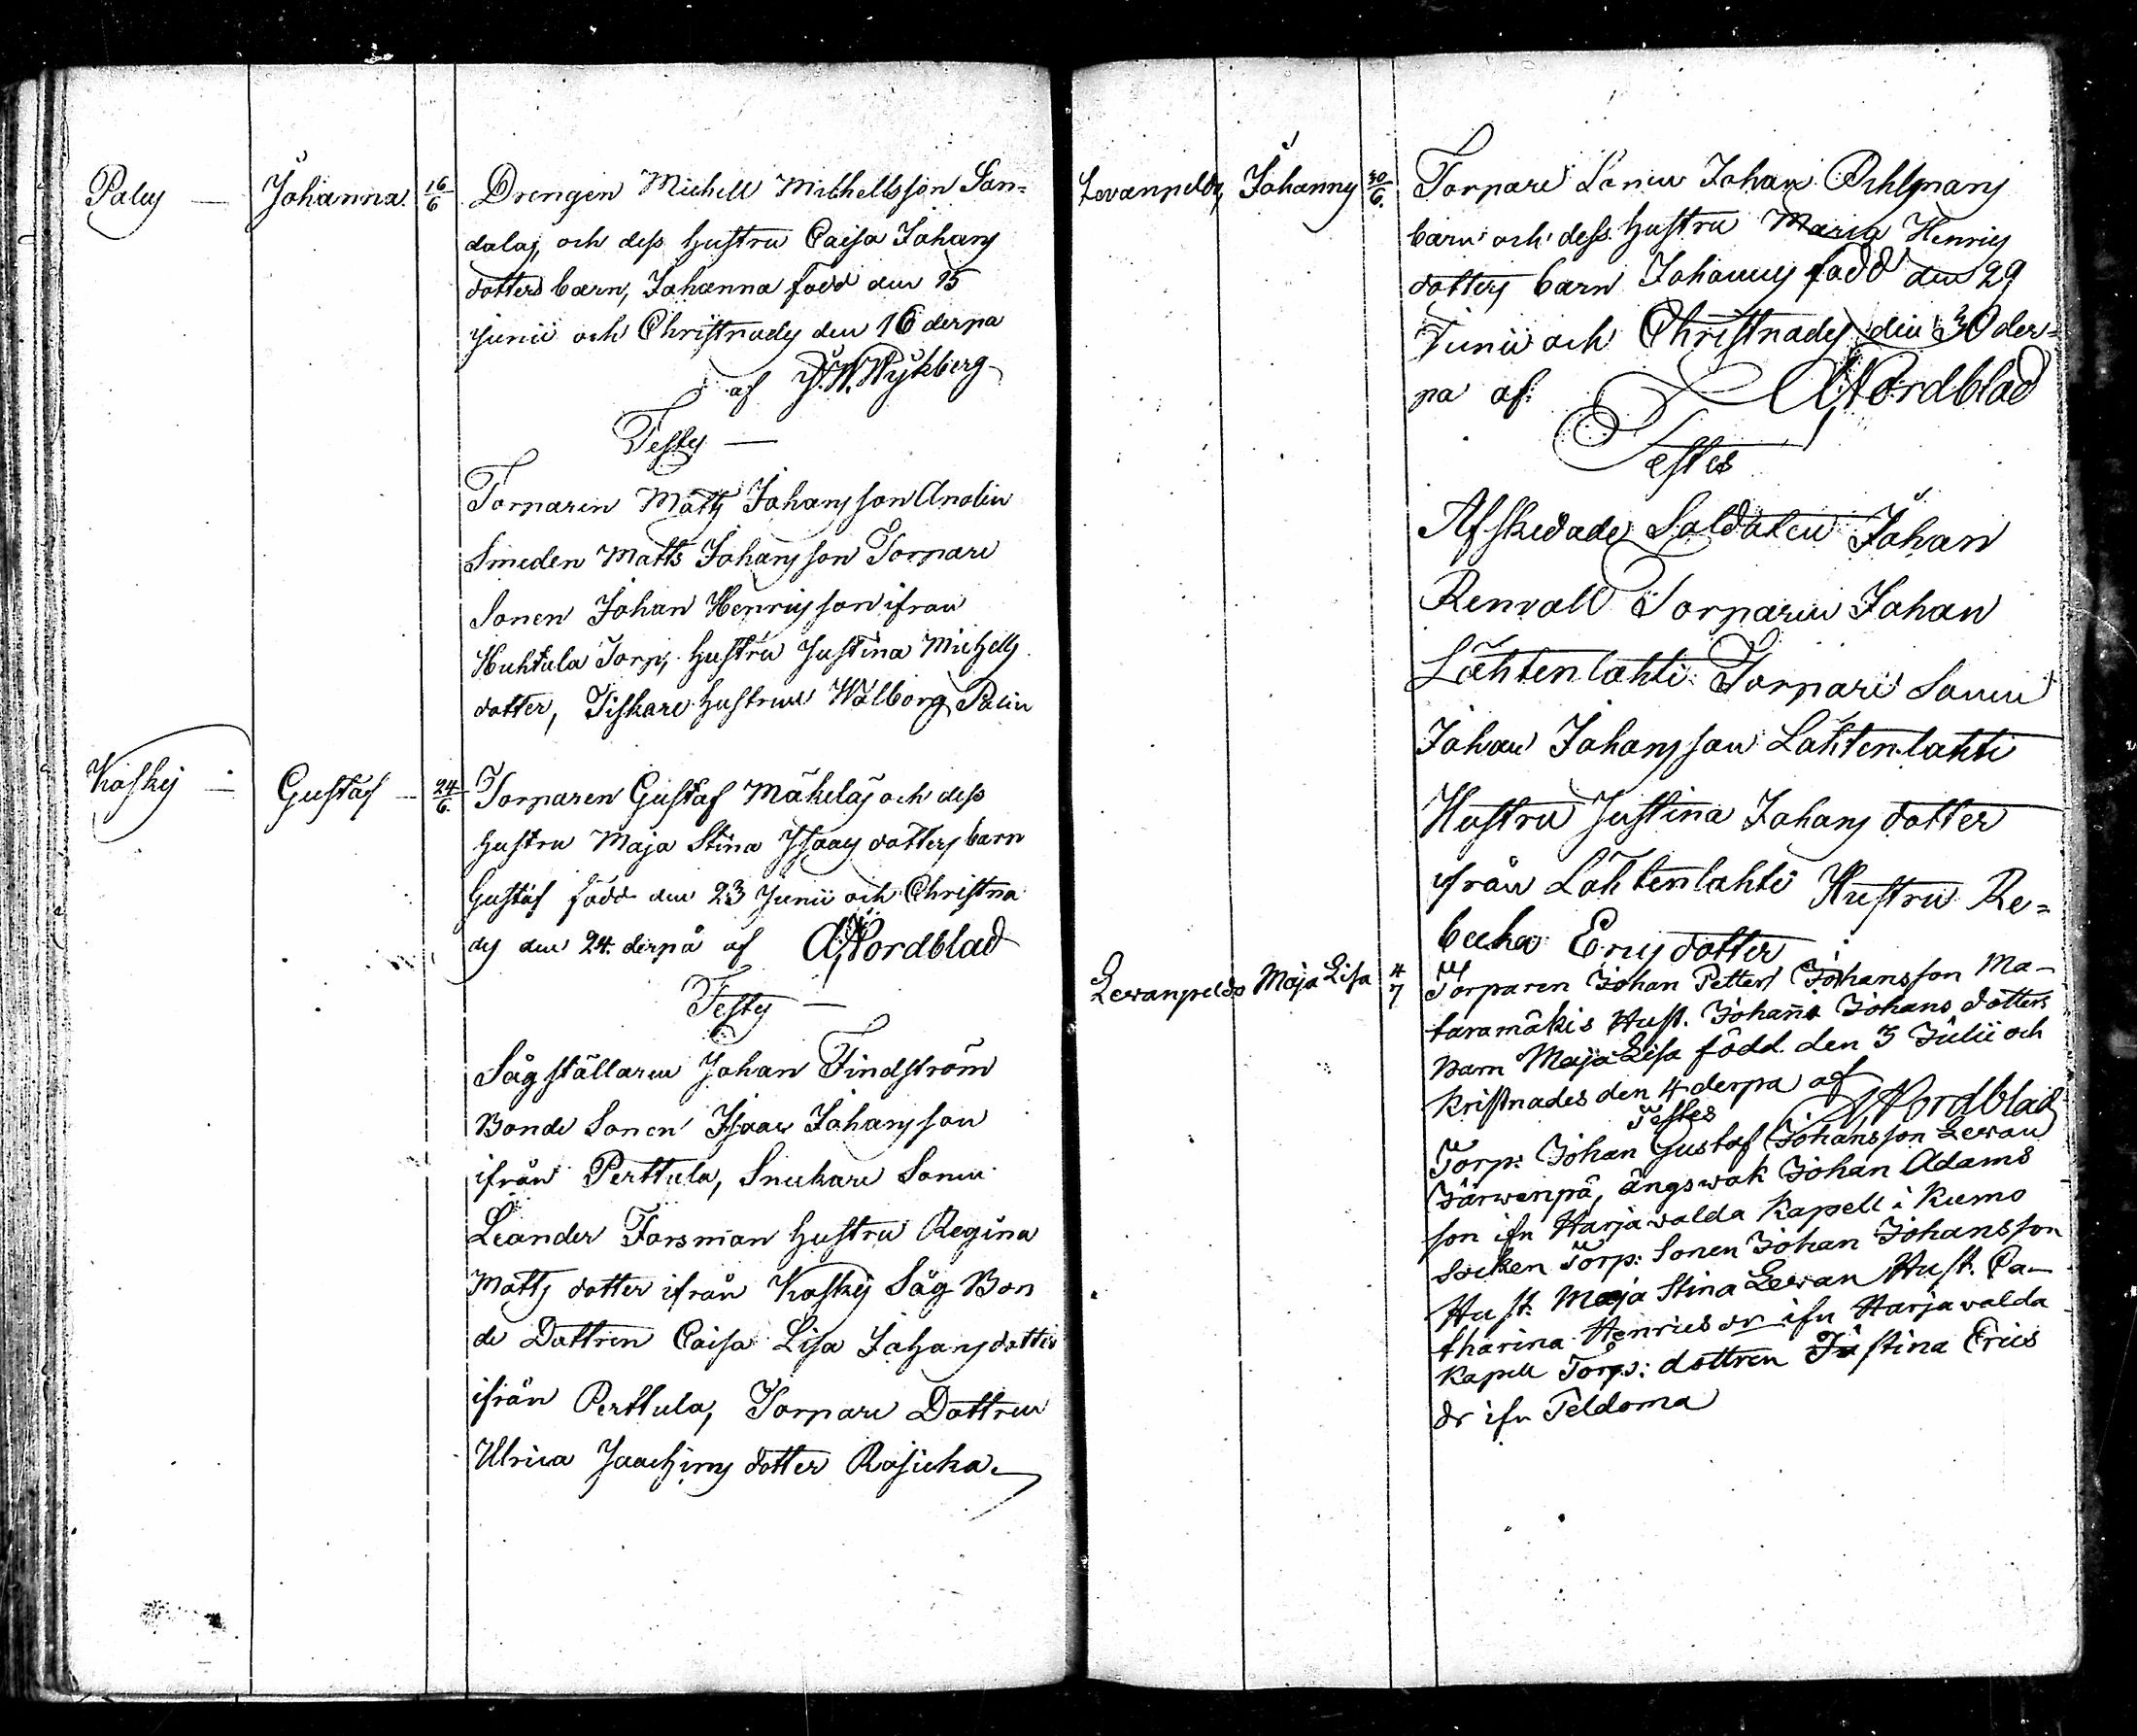 Palus — Johanna 16/6 Drengen Michell Michellsson San=
dalas, och dess hustru Caisa Johans
dotters barn, Johanna född den 15
Junii och Christnades den 16 derpa
af J. W. Wijkberg
Testes —
Torparen Matts Johansson Anolin
Smeden Matts Johansson Torpare
Sonen Johan Henricsson ifrån
Huhtula Torp, hustru Justina Michells
dotter, Fiskare hustrun Walborg Palin
Koskis — Gustaf — 24/6 Torparen Gustaf Mäkeläs och dess
hustru Maja Stina Isaacs dotters barn
Gustaf född den 23 Junii och Christna
des den 24 derpå af A Nordblad
Testes —
Sågställaren Johan Findström
Bonde Sonen Isaac Johansson
ifrån Perttula, Snickare Sonen
Leander Forsman hustru Regina
Matts dotter ifrån Koskis Såg Bon
de Dottren Caisa Lisa Johansdotter
ifrån Perttula, Torpare Dottren
Ulrica Joachims dotter Rosicka
Levanpeldo, Johannes 30/6. Torpare Sonen Johan Pihlmans
barn och dess hustru Maria Henrics
dotters barn Johannes född den 29
Junii och Christnades den 30 der=
pa af A Nordblad
Testes
Afskedade Soldaten Johan
Renvall Torparen Johan
Lähtenlahti Torpare Sonen
Johan Johansson Lähtenlahti
Hustru Justina Johans dotter
ifrån Lähtenlahti Hustru Re=
becka Erics dotter
Levanpeldo Maja Lisa 4/7 Torparen Johan Petter Johansson Ma-
taramäkis Hust. Johanna Johans dotters
Barn Maja Lisa född den 3 Julii och
kristnades den 4 derpa af A Nordblad
Testes
Torp: Johan Gustaf Johansson Levan
Järwenpä, ängswak Johan Adams
son ifn Harjavalda Kapell i Kumo
Socken Torp: Sonen Johan Johansson
Hust: Maja Stina Levan Hust. Ca-
tharina Henrics dr ifn Harjavalda
Kapell Torp: dottren Justina Erics
dr ifn Peldoma